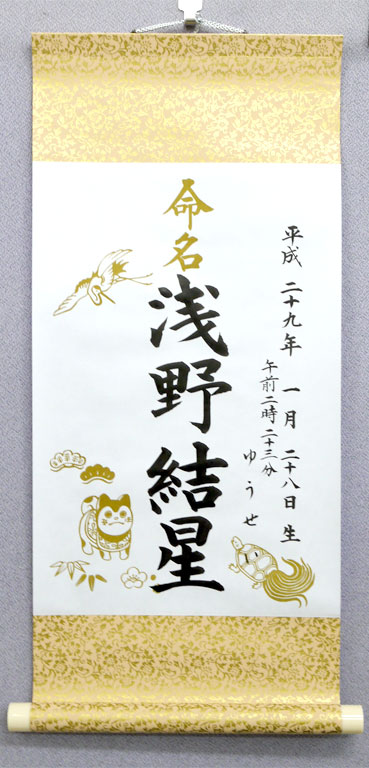 平成二十九年 一月 二十八日生
午前二時二十三分
ゆうせ
命名
浅野結星